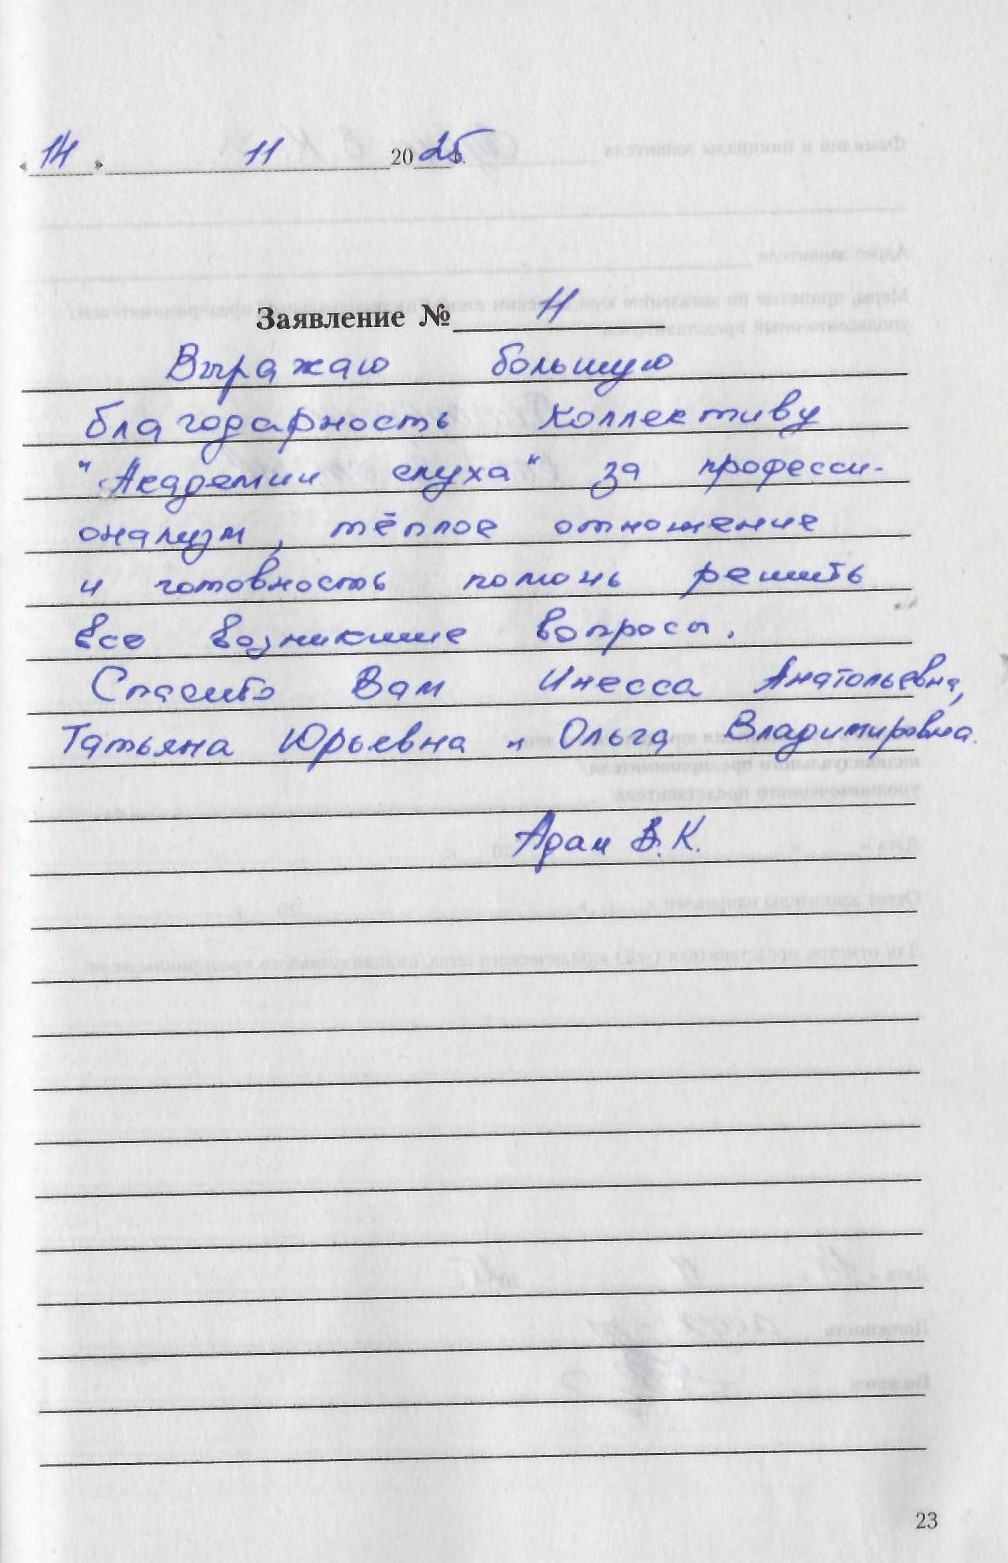 « 14 » 11 2025
Заявление № 11
Выражаю большую
благодарность коллективу
"Академии слуха" за професси-
онализм, тёплое отношение
и готовность помочь решить
все возникшие вопросы.
Спасибо Вам Инесса Анатольевна,
Татьяна Юрьевна и Ольга Владимировна.
Адам В.К.
23